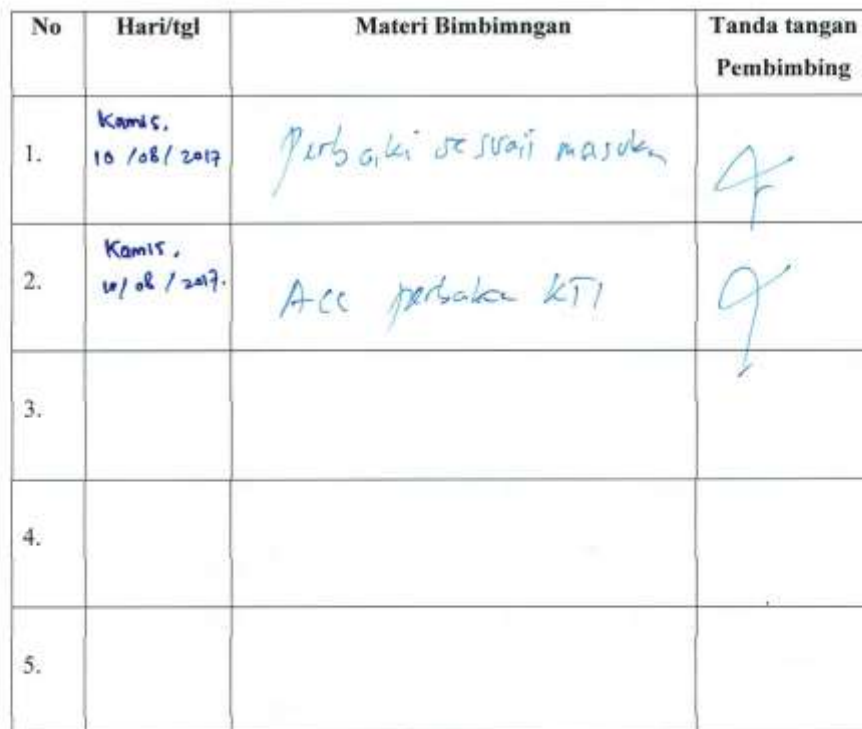 No Hari/tgl Materi Bimbimngan Tanda tangan
Pembimbing
Kamis,
1. 10 /08/ 2017 Perbaiki sesuai masukan
Kamis,
2. 10/ 08 / 2017. Acc perbaikan KTI
3.
4.
5.